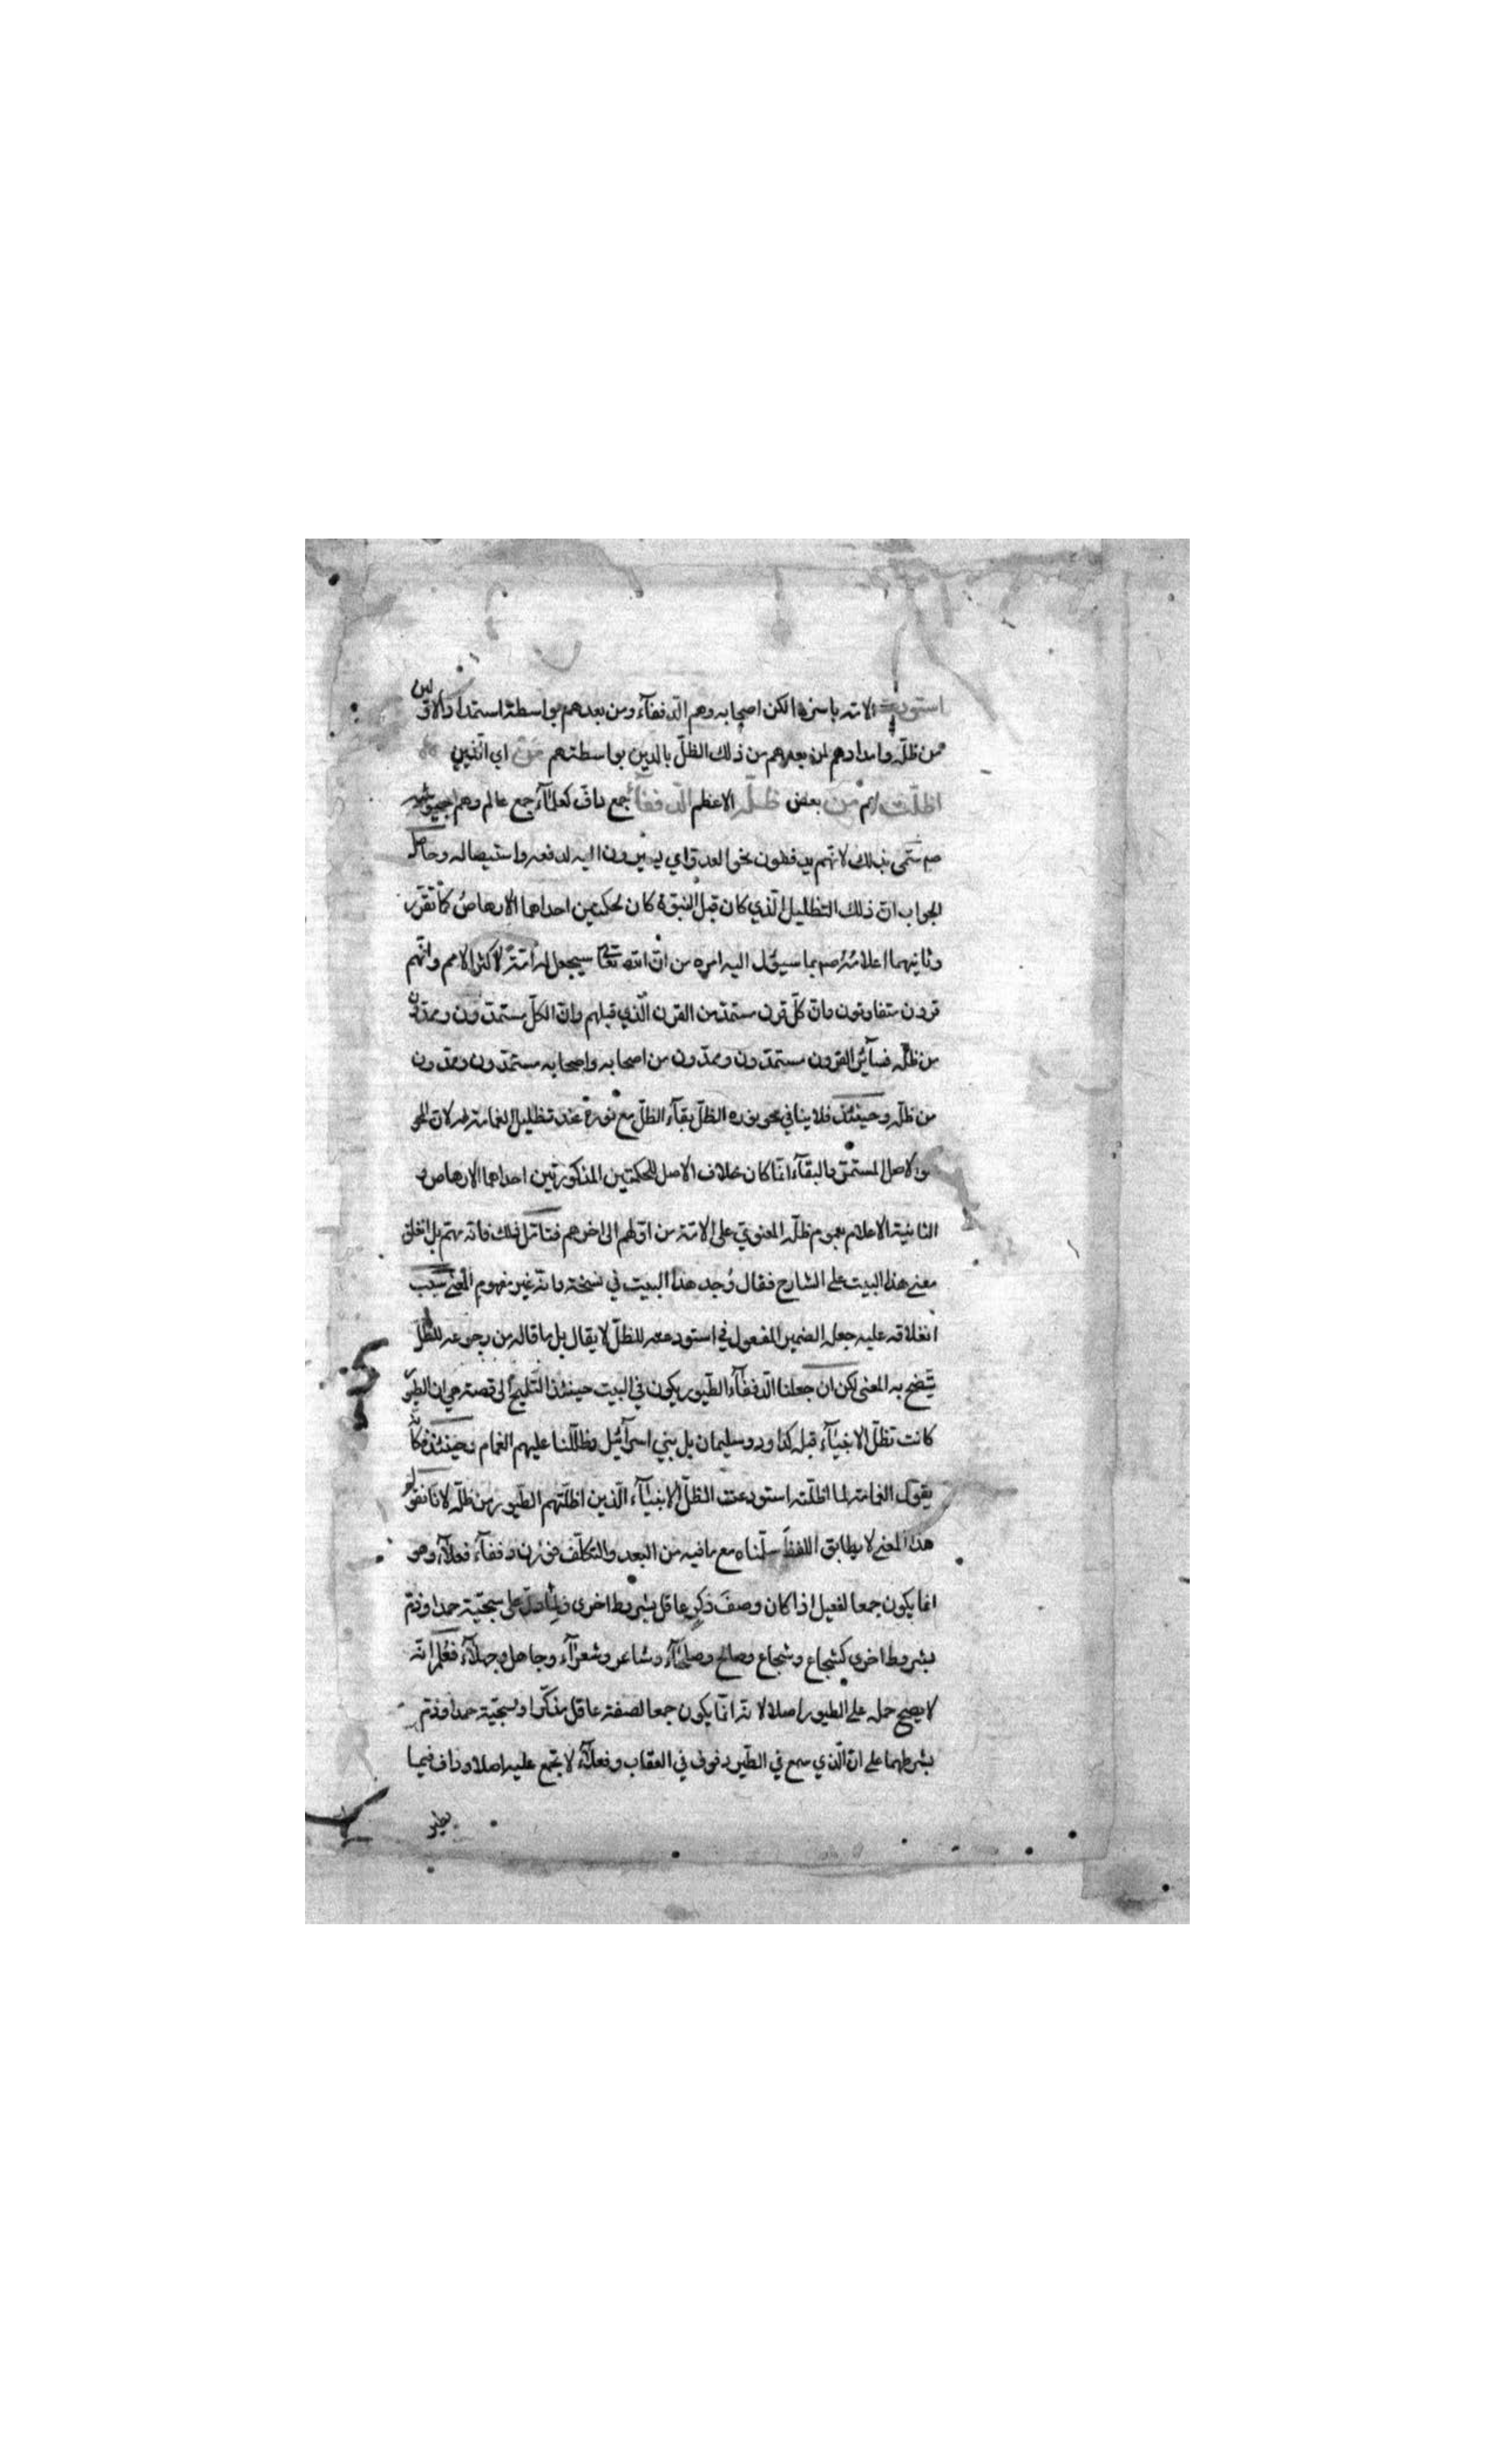 استودعت الامة باسرها لكن اصحابه وهم الدففآء ومن بعدهم بواسطة استمداد الاولين
من ظلّه وامدادهم لمن بعدهم من ذلك الظلّ بالدين بواسطتهم مَن اي الذين
اظلّت هم من بعض ظلّه الاعظم الدففآء جمع دافّ كعلمآء جمع عالم وهم جيوشه
صم سُمّي بذلك لانهم يدفون نحو العدوّ اي يسيرون اليه لدفعه واستيصاله وحاصل
الجواب انّ ذلك التظليل الّذي كان قبل النبوّة كان لحكمتين احداهما الارهاصُ كما تقرّر
وثانيهما اعلامُه صم بما سيؤل اليه امره من انّ الله تعالى سيجعل له امّة لاكثر الامم وانّهم
قرون متفاوتون وانّ كلّ قرن مستمدّ من القرن الّذي قبلهم وانّ الكلّ مستمدّون وممدّون
من ظلّه فسآئر القرون مستمدّون وممدّون من اصحابه واصحابه مستمدّون وممدّون
من ظلّه وحينئذ فلا ينافي محو نوره الظلّ بقآء الظلّ مع نوره عند تظليل الغمامة له لانّ المحو
هو الاصل المستمرّ والبقآء انّما كان خلاف الاصل للحكمتين المذكورتين احداهما الارهاص و
الثانية الاعلام بعموم ظلّه المعنويّ على الامّة من اوّلهم الى اخرهم فتامّل ذلك فانه مهمّ بل انغلق
معنى هذا البيت على الشارح فقال وُجد هذا البيت في نسخة وانّه غير مفهوم المعنى وسبب
انغلاقه عليه جعله الضمير المفعول في استودعته للظلّ لا يقال بل ما قاله من رجوعه للظلّ
يتّضح به المعنى لكن ان جعلنا الدففآء الطّيور يكون في البيت حينئذ التلميح الى قصة هي ان الطّيور
كانت تظلّ الانبيآء قبله كداود وسليمان بل بني اسرآئيل وظلّلنا عليهم الغمام وحينئذ فكانّه
يقول الغمامة لما اظلّته استودعت الظلّ الانبيآء الّذين اظلّتهم الطّيور من ظلّه لانّا نقول
هذا المعنى لا يطابق اللفظ سلّمناه مع ما فيه من البعد والتكلّف فوزن دففآء فعلآء وهو
انما يكون جمعا لفعيل اذا كان وصفَ ذكرٍ عاقل بشروط اخرى ولما دلّ على سجيّة حمد او ذمّ
بشروط اخرى كشجاع وشجعاء وصالح وصلحآء وشاعر وشعرآء وجاهل وجهلآء فعُلم انّه
لا يصح حمله على الطيور اصلا لانّه انّما يكون جمعا لصفة عاقل مذكّر او لسجيّة حمد او ذمّ
بشرطهما على انّ الّذي سمع في الطّير دفوف في العقاب وفعلآء لا يجمع عليه اصلا وداف فيما
يطير